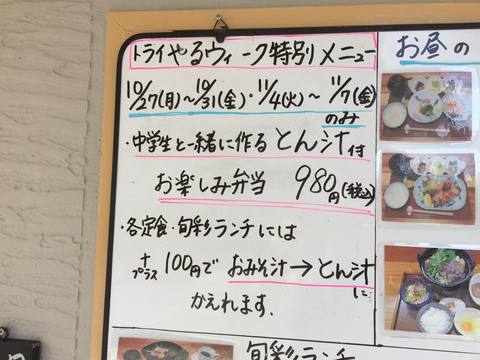 トライやるウィーク特別メニュー
10/27(月)～10/31(金)・11/4(火)～11/7(金)
のみ
・中学生と一緒に作るとん汁付
お楽しみ弁当 980円(税込)
・各定食・旬彩ランチには
+プラス 100円でおみそ汁→とん汁に
かえれます。
お昼の
旬彩ランチ